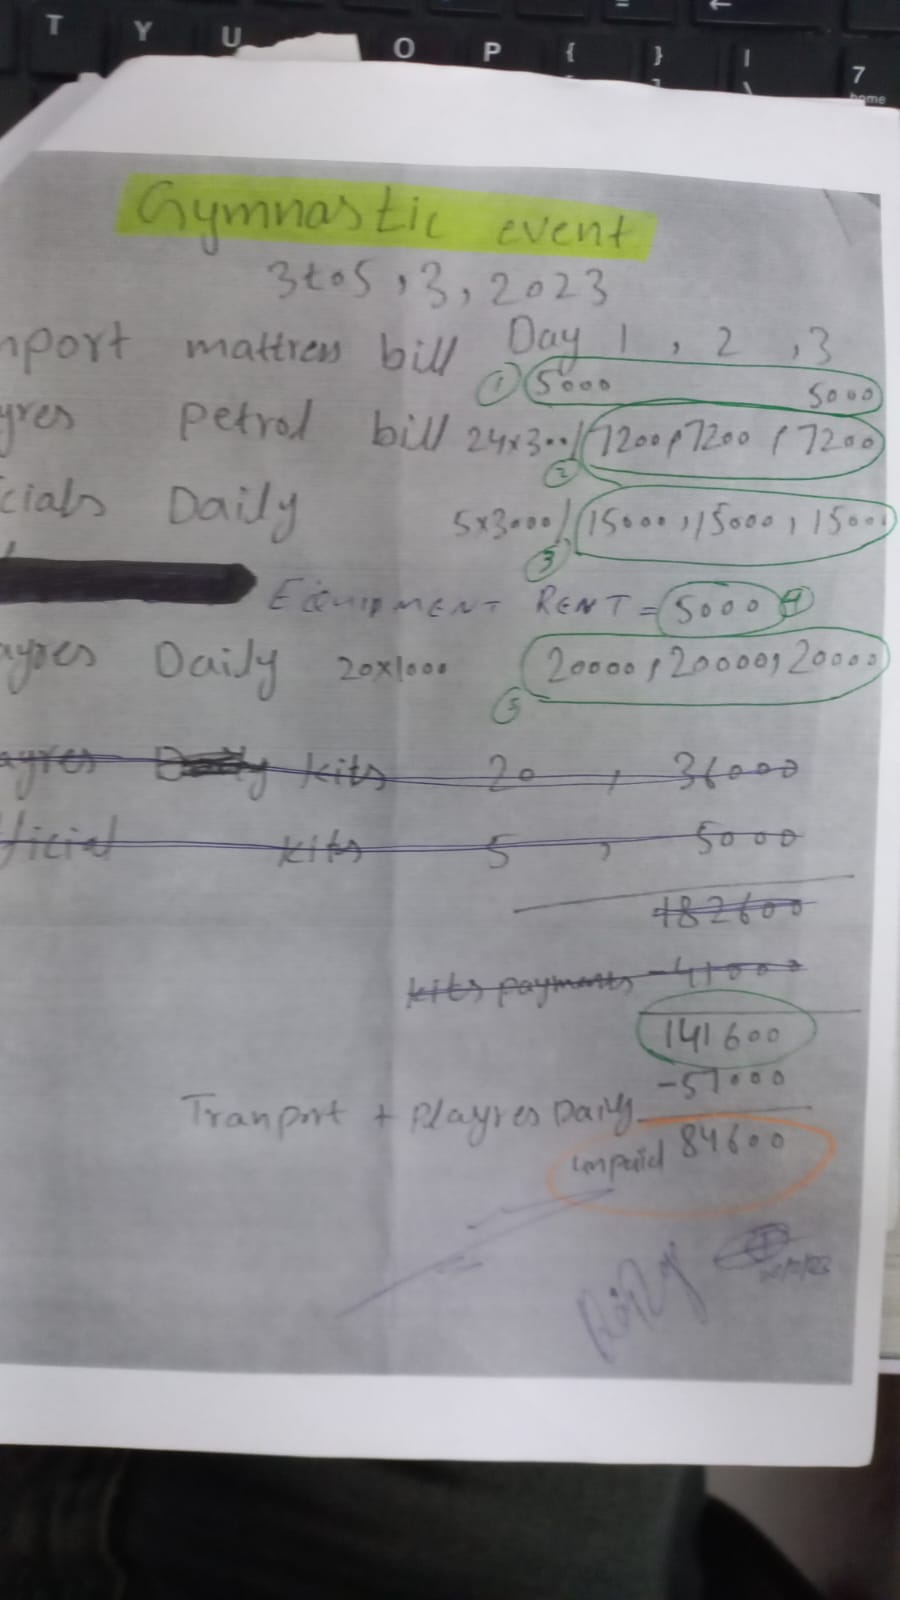 T Y U O P { } | \ 7 home
Gymnastic event
3to5,3,2023
nport mattress bill Day 1, 2, 3
① 5000 5000
yres petrol bill 24x300/ 7200, 7200, 7200
②
cials Daily 5x3000/ 15000, 15000, 1500
③
EQUIPMENT RENT = 5000 ④
ayres Daily 20x1000 20000, 20000, 20000
⑤
ayres Daily kits 20, 36000
ficial kits 5, 5000
182600
kits payments -41000
141600
-57000
Tranport + Playres Daily
unpaid 84600